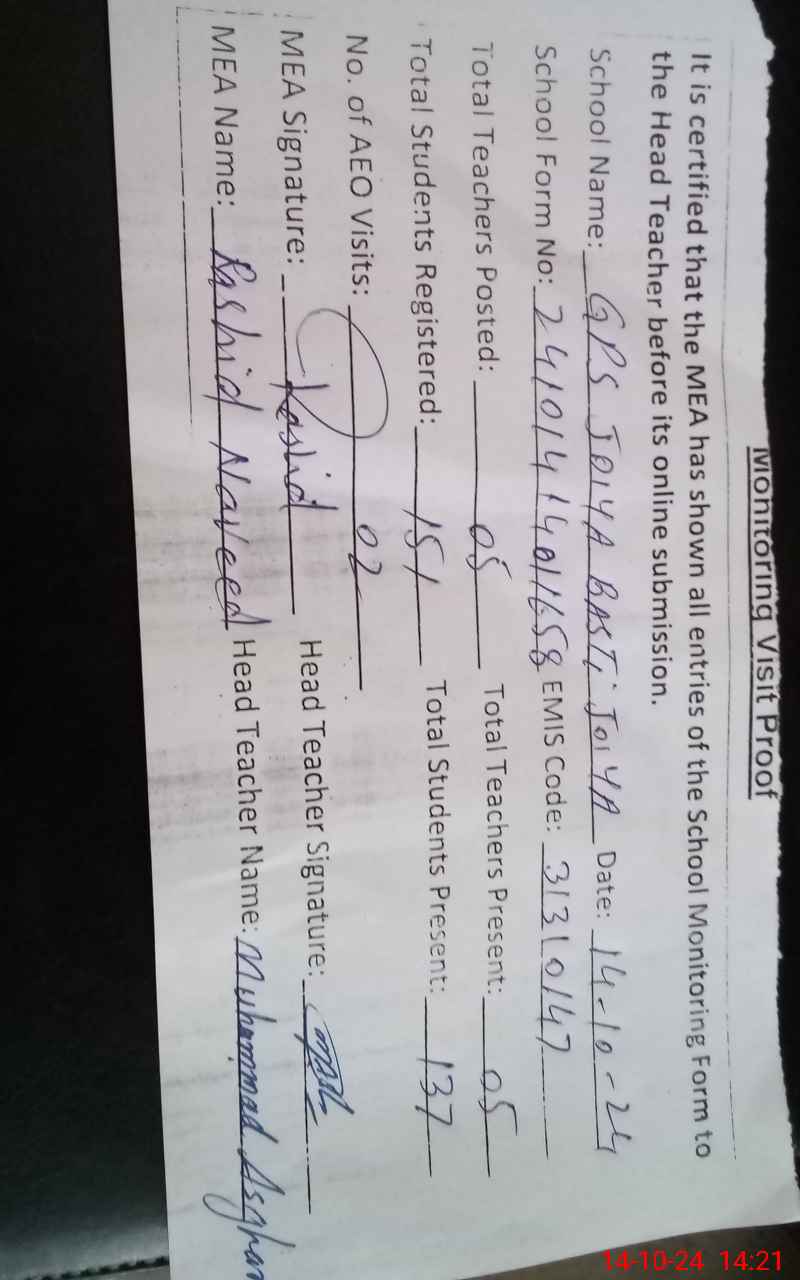 Monitoring Visit Proof
It is certified that the MEA has shown all entries of the School Monitoring Form to
the Head Teacher before its online submission.
School Name: GPS JOIYA BASTI JOIYA Date: 14-10-24
School Form No: 24101414011658 EMIS Code: 31310147
Total Teachers Posted: 05 Total Teachers Present: 05
Total Students Registered: 151 Total Students Present: 137
No. of AEO Visits: 02
MEA Signature: Rashid Head Teacher Signature:
MEA Name: Rashid Naveed Head Teacher Name: Muhammad Asghar
14-10-24 14:21